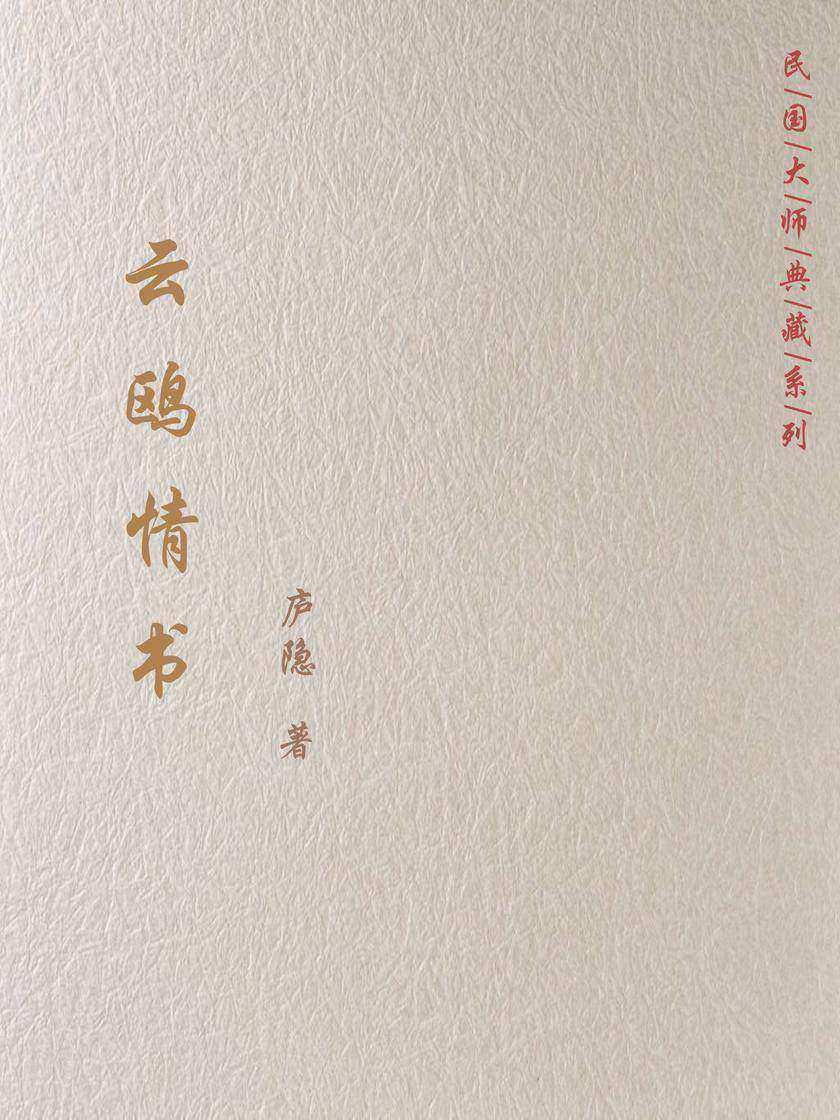 民/国/大/师/典/藏/系/列
云鸥情书
庐隐 著